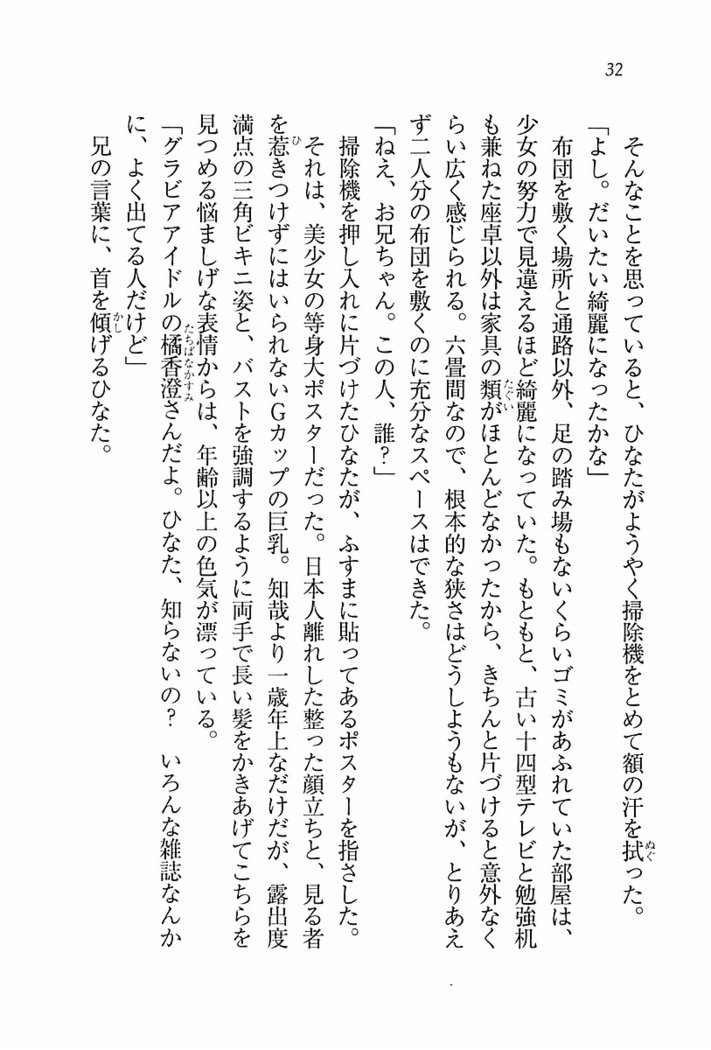 32
そんなことを思っていると、ひなたがようやく掃除機をとめて額の汗を拭った。
「よし。だいたい綺麗になったかな」
布団を敷く場所と通路以外、足の踏み場もないくらいゴミがあふれていた部屋は、
少女の努力で見違えるほど綺麗になっていた。もともと、古い十四型テレビと勉強机
も兼ねた座卓以外は家具の類がほとんどなかったから、きちんと片づけると意外なく
らい広く感じられる。六畳間なので、根本的な狭さはどうしようもないが、とりあえ
ず二人分の布団を敷くのに充分なスペースはできた。
「ねえ、お兄ちゃん。この人、誰？」
掃除機を押し入れに片づけたひなたが、ふすまに貼ってあるポスターを指さした。
それは、美少女の等身大ポスターだった。日本人離れした整った顔立ちと、見る者
を惹きつけずにはいられないGカップの巨乳。知哉より一歳年上なだけだが、露出度
満点の三角ビキニ姿と、バストを強調するように両手で長い髪をかきあげてこちらを
見つめる悩ましげな表情からは、年齢以上の色気が漂っている。
「グラビアアイドルの橘香澄さんだよ。ひなた、知らないの？　いろんな雑誌なんか
に、よく出てる人だけど」
兄の言葉に、首を傾げるひなた。